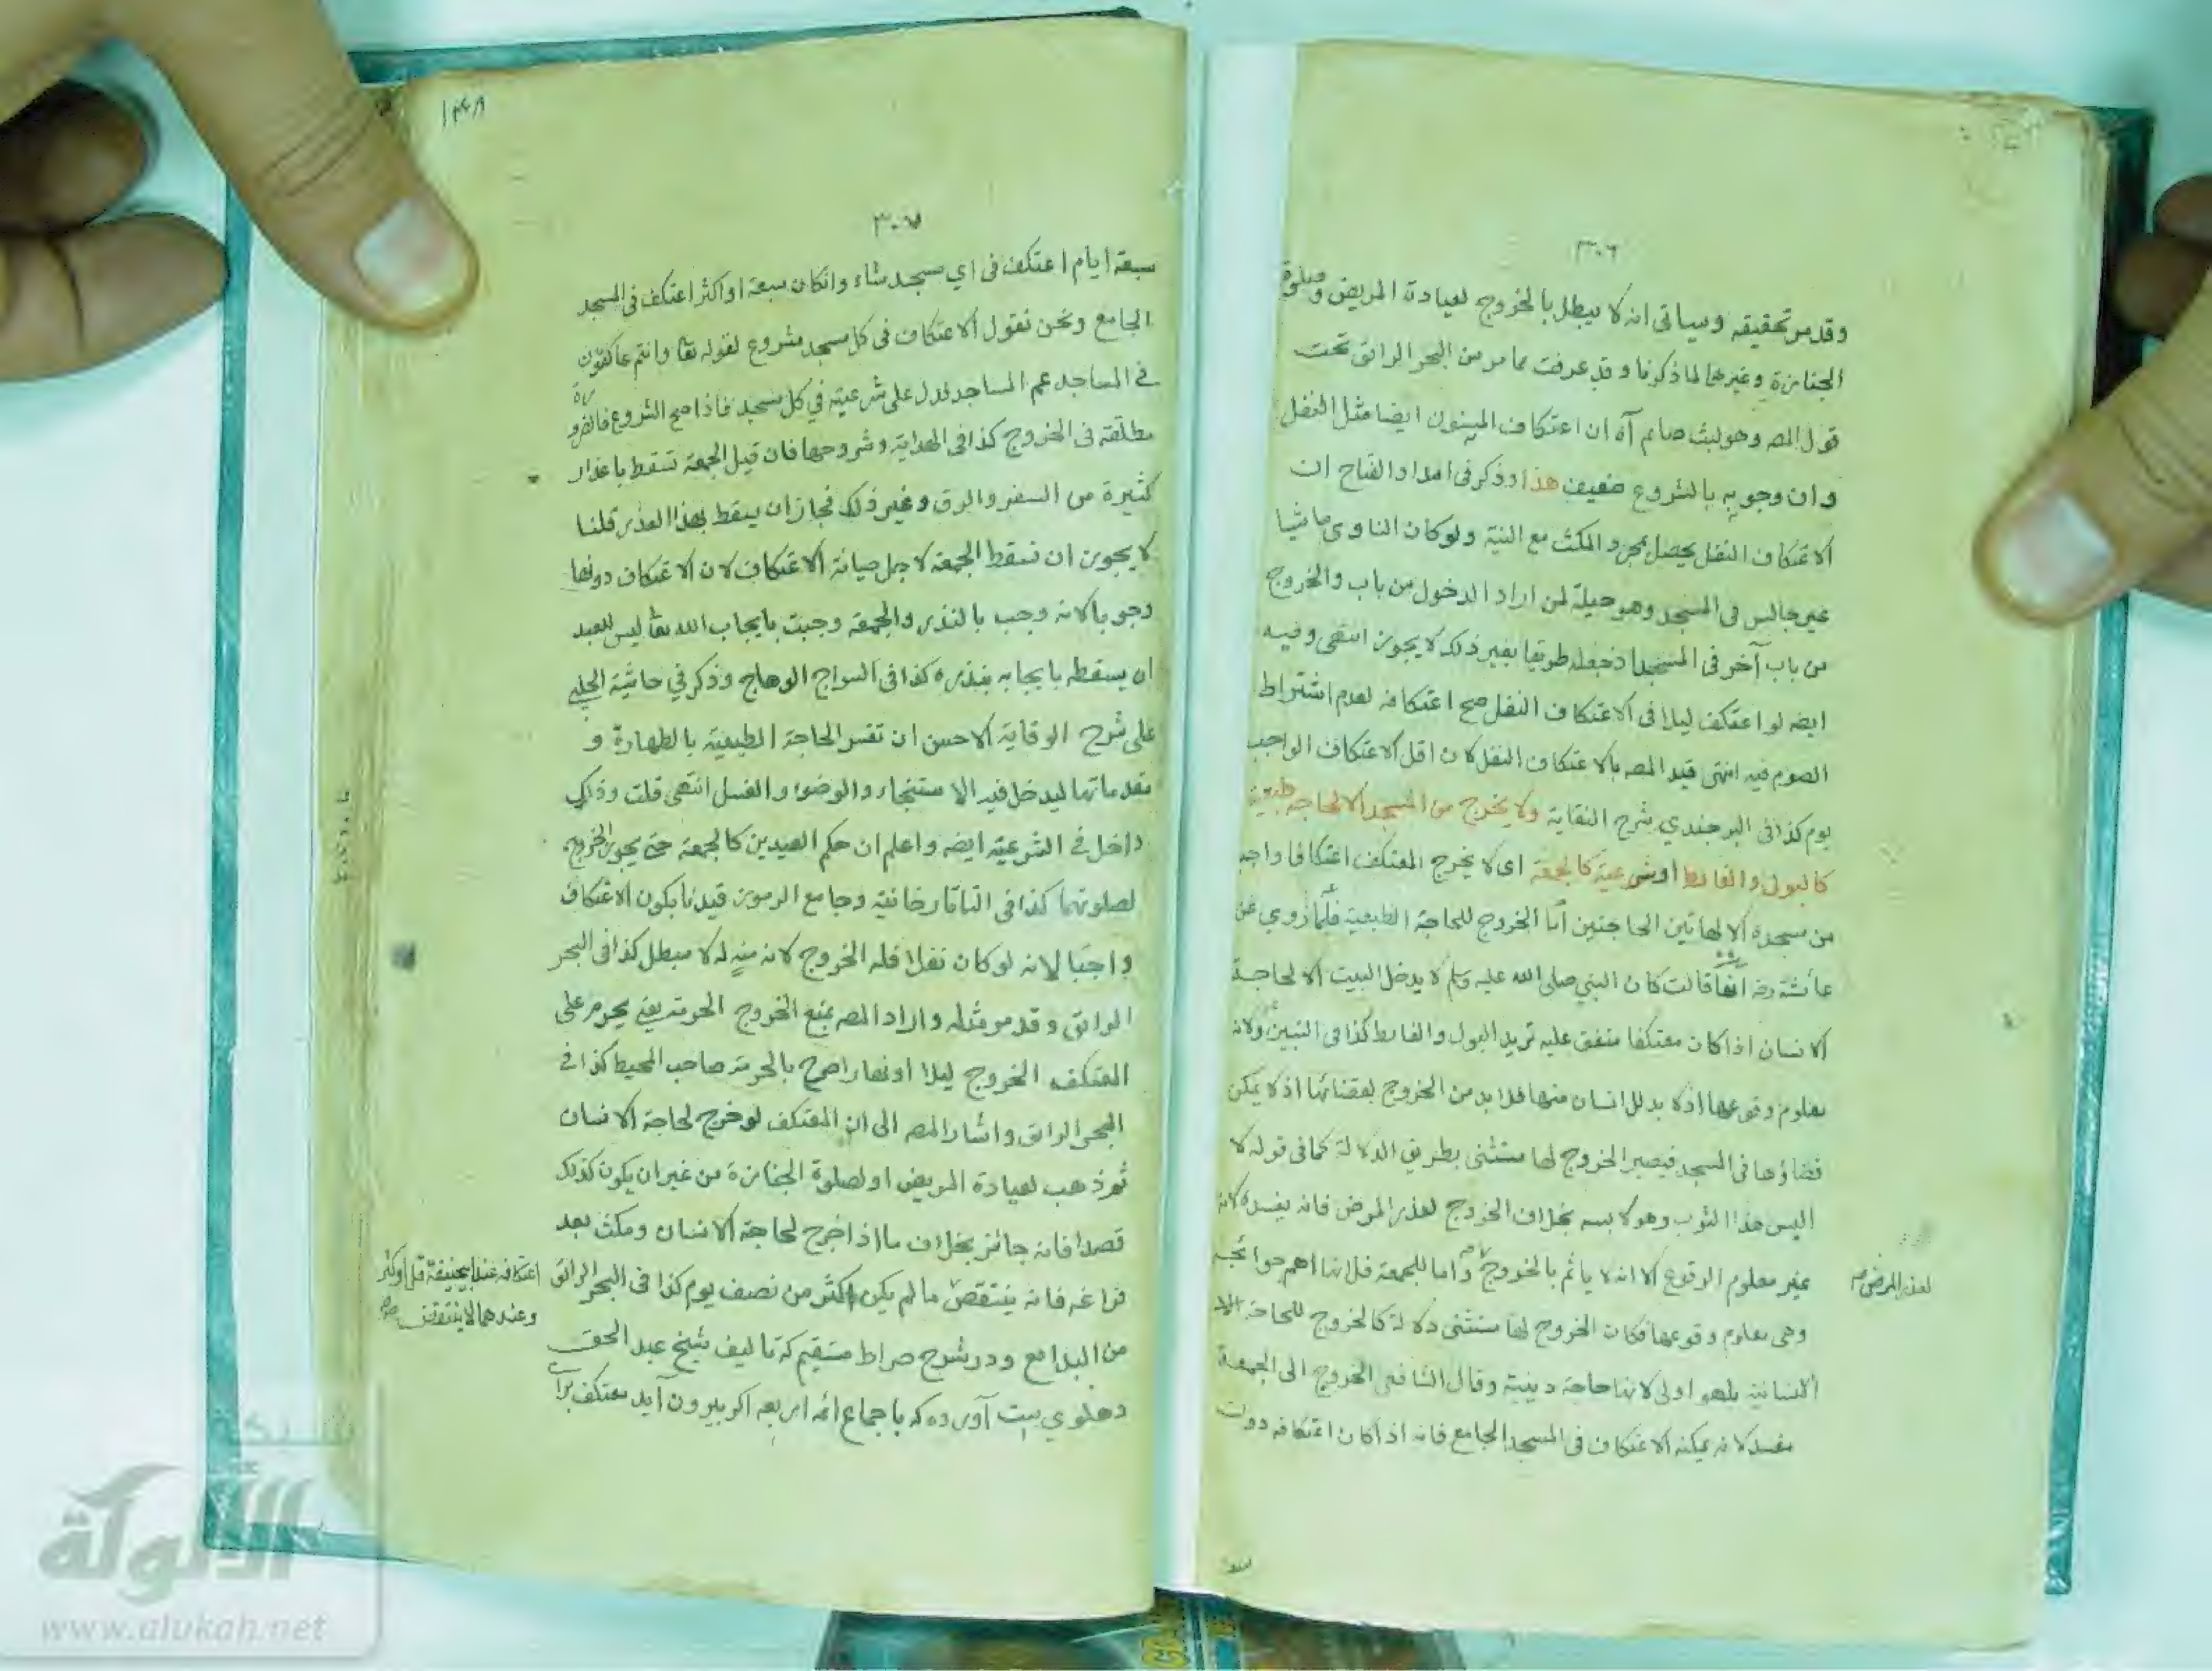 ٣٠٦
وقد مر تحقيقه وسياتى انه لا يبطل بالخروج لعيادة المريض وصلوة
الجنازة وغيرها لما ذكرنا وقد عرفت مما مر من البحر الرائق تحت
قول المصـ وهو لبث صائم آه ان اعتكاف المسنون ايضا مثل النفل
وان وجوبه بالشروع ضعيف هذا وذكر فى امداد الفتاح ان
الاعتكاف النفل يحصل بمجرد المكث مع النية ولو كان الناوى ماشيا
غير جالس فى المسجد وهو حيلة لمن اراد الدخول من باب والخروج
من باب آخر فى المسجد اذ جعله طريقا بغير ذلك لا يجوز انتهى وفيه
ايضـ لو اعتكف ليلا فى الاعتكاف النفل صح اعتكافه لعدم اشتراط
الصوم فيه انتهى قيد المصـ بالاعتكاف النفل لان اقل الاعتكاف الواجب
يوم كذا فى البرجندي شرح النقاية ولا يخرج من المسجد الا لحاجة طبيعية
كالبول والغائط او شرعية كالجمعة اى لا يخرج المعتكف اعتكافا واجبا
من مسجده الا لهاتين الحاجتين اما الخروج للحاجة الطبيعية فلما روي عن
عائشة رضـ انها قالت كان النبي صلى الله عليه وسلم لا يدخل البيت الا لحاجة
الانسان اذا كان معتكفا متفق عليه تريد البول والغائط كذا فى التبيين ولانه
معلوم وقوعها اذ لا بد للانسان منها فلا بد من الخروج لقضائها اذ لا يمكن
قضاؤها فى المسجد فيصير الخروج لها مستثنى بطريق الدلالة كما فى قوله لا
البس هذا الثوب وهو لابسه بخلاف الخروج لعذر المرض فانه يفسده لانه
غير معلوم الوقوع الا انه لا ياثم بالخروج واما للجمعة فلانها اهم حوائجه
لعذر المرض صح
وهى معلوم وقوعها فكان الخروج لها مستثنى دلالة كالخروج للحاجة
الانسانية بل هو اولى لانها حاجة دينية وقال الشافعى الخروج الى الجمعة
مفسد لانه يمكنه الاعتكاف فى المسجد الجامع فانه اذا كان اعتكافه دون
سبعة
١٤٨
٣٠٧
سبعة ايام اعتكف فى اي مسجد شاء وان كان سبعة او اكثر اعتكف فى المسجد
الجامع ونحن نقول الاعتكاف فى كل مسجد مشروع لقوله تعا وانتم عاكفون
فى المساجد عم المساجد فدل على شرعيته في كل مسجد فاذا صح الشروع فالضرورة
مطلقة فى الخروج كذا فى الهداية وشروحها فان قيل الجمعة تسقط باعذار
كثيرة من السفر والرق وغير ذلك فجاز ان يسقط بهذا العذر قلنا
لا يجوز ان تسقط الجمعة لاجل صيانة الاعتكاف لان الاعتكاف دونها
وجوبا لانه وجب بالنذر والجمعة وجبت بايجاب الله تعا ليس للعبد
ان يسقطه بايجابه بنذره كذا فى السراج الوهاج وذكر في حاشية الچلبي
على شرح الوقاية الاحسن ان تفسر الحاجة الطبيعية بالطهارة و
مقدماتها ليدخل فيه الاستنجاء والوضوء والغسل انتهى قلت وذلك
داخل فى الشرعية ايضـ واعلم ان حكم العيدين كالجمعة حتى يجوز الخروج
لصلوتهما كذا فى التاتارخانية وجامع الرموز قيدنا بكون الاعتكاف
واجبا لانه لو كان نفلا فله الخروج لانه منه له لا مبطل كذا فى البحر
الرائق وقد مر مثله واراد المصـ بمنع الخروج الحرمة يعنى يحرم على
المعتكف الخروج ليلا او نهارا صرح بالحرمة صاحب المحيط كذا فى
البحر الرائق واشار المصـ الى ان المعتكف لو خرج لحاجة الانسان
ثم ذهب لعيادة المريض او لصلوة الجنازة من غير ان يكون كذلك
قصدا فانه جائز بخلاف ما اذا خرج لحاجة الانسان ومكث بعد
فراغه فانه ينتقض ما لم يكن اكثر من نصف يوم كذا فى البحر الرائق
اعتكافه عند ابيحنيفة قل او كثر
وعندهما لا ينتقض صح
من البدائع ودر شرح صراط مستقيم كه تاليف شيخ عبد الحق
دهلوي ست آورده كه باجماع ائمه اربعه اكر بيرون آيد معتكف براى
شبكة
الألوكة
www.alukah.net